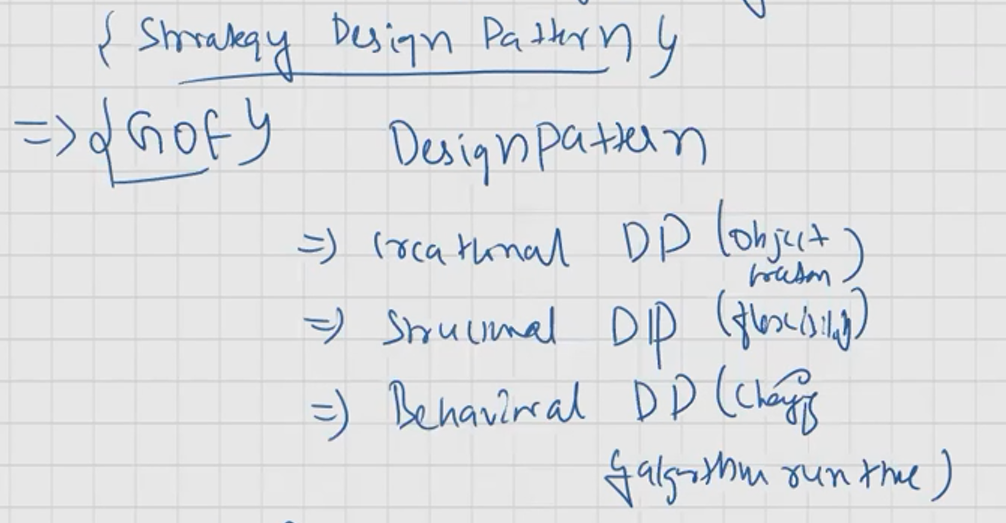 { Strategy Design Pattern }
=> { GOF } Design Pattern
=> Creational DP (object creation)
=> Structural DP (flexibility)
=> Behavioral DP (Changing
algorithm run time)